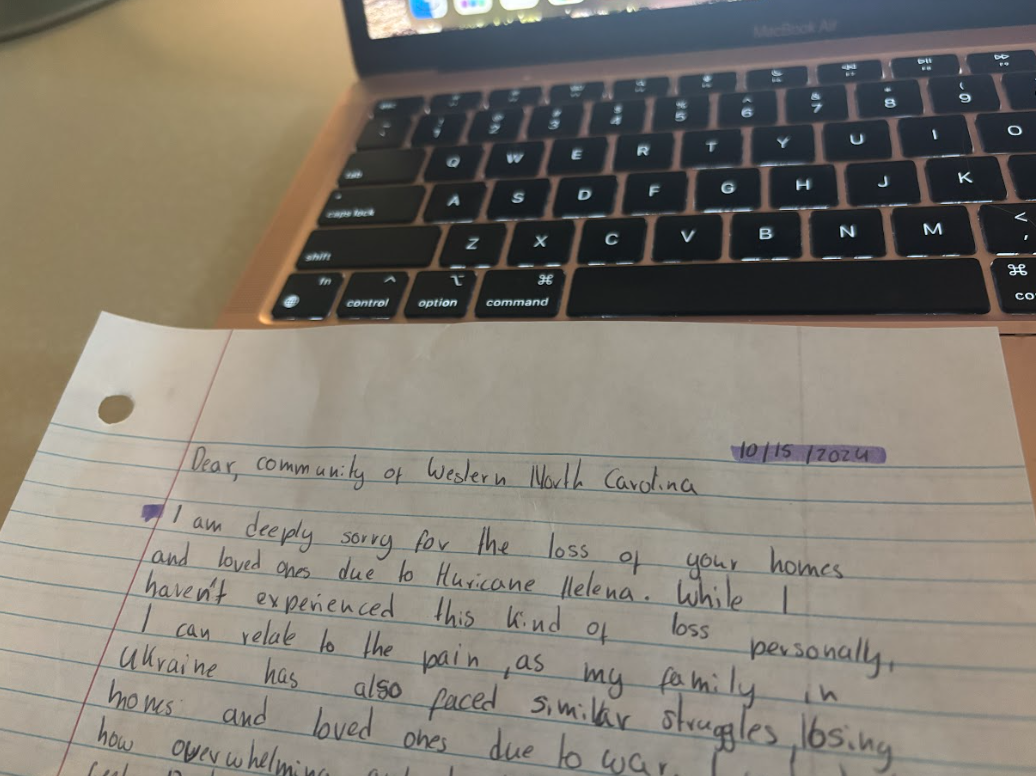 MacBook Air
2 3 4 5 ^ 6 & 7 * 8 ( 9
tab Q W E R T Y U I O
caps lock A S D F G H J K
shift Z X C V B N M < ,
fn ^ control ⌥ option ⌘ command ⌘ co
10/15/2024
Dear, community of Western North Carolina
I am deeply sorry for the loss of your homes
and loved ones due to Huricane Helena. While I
haven't experienced this kind of loss personally,
I can relate to the pain, as my family in
Ukraine has also faced similar struggles, losing
homes and loved ones due to war.
how overwhelming